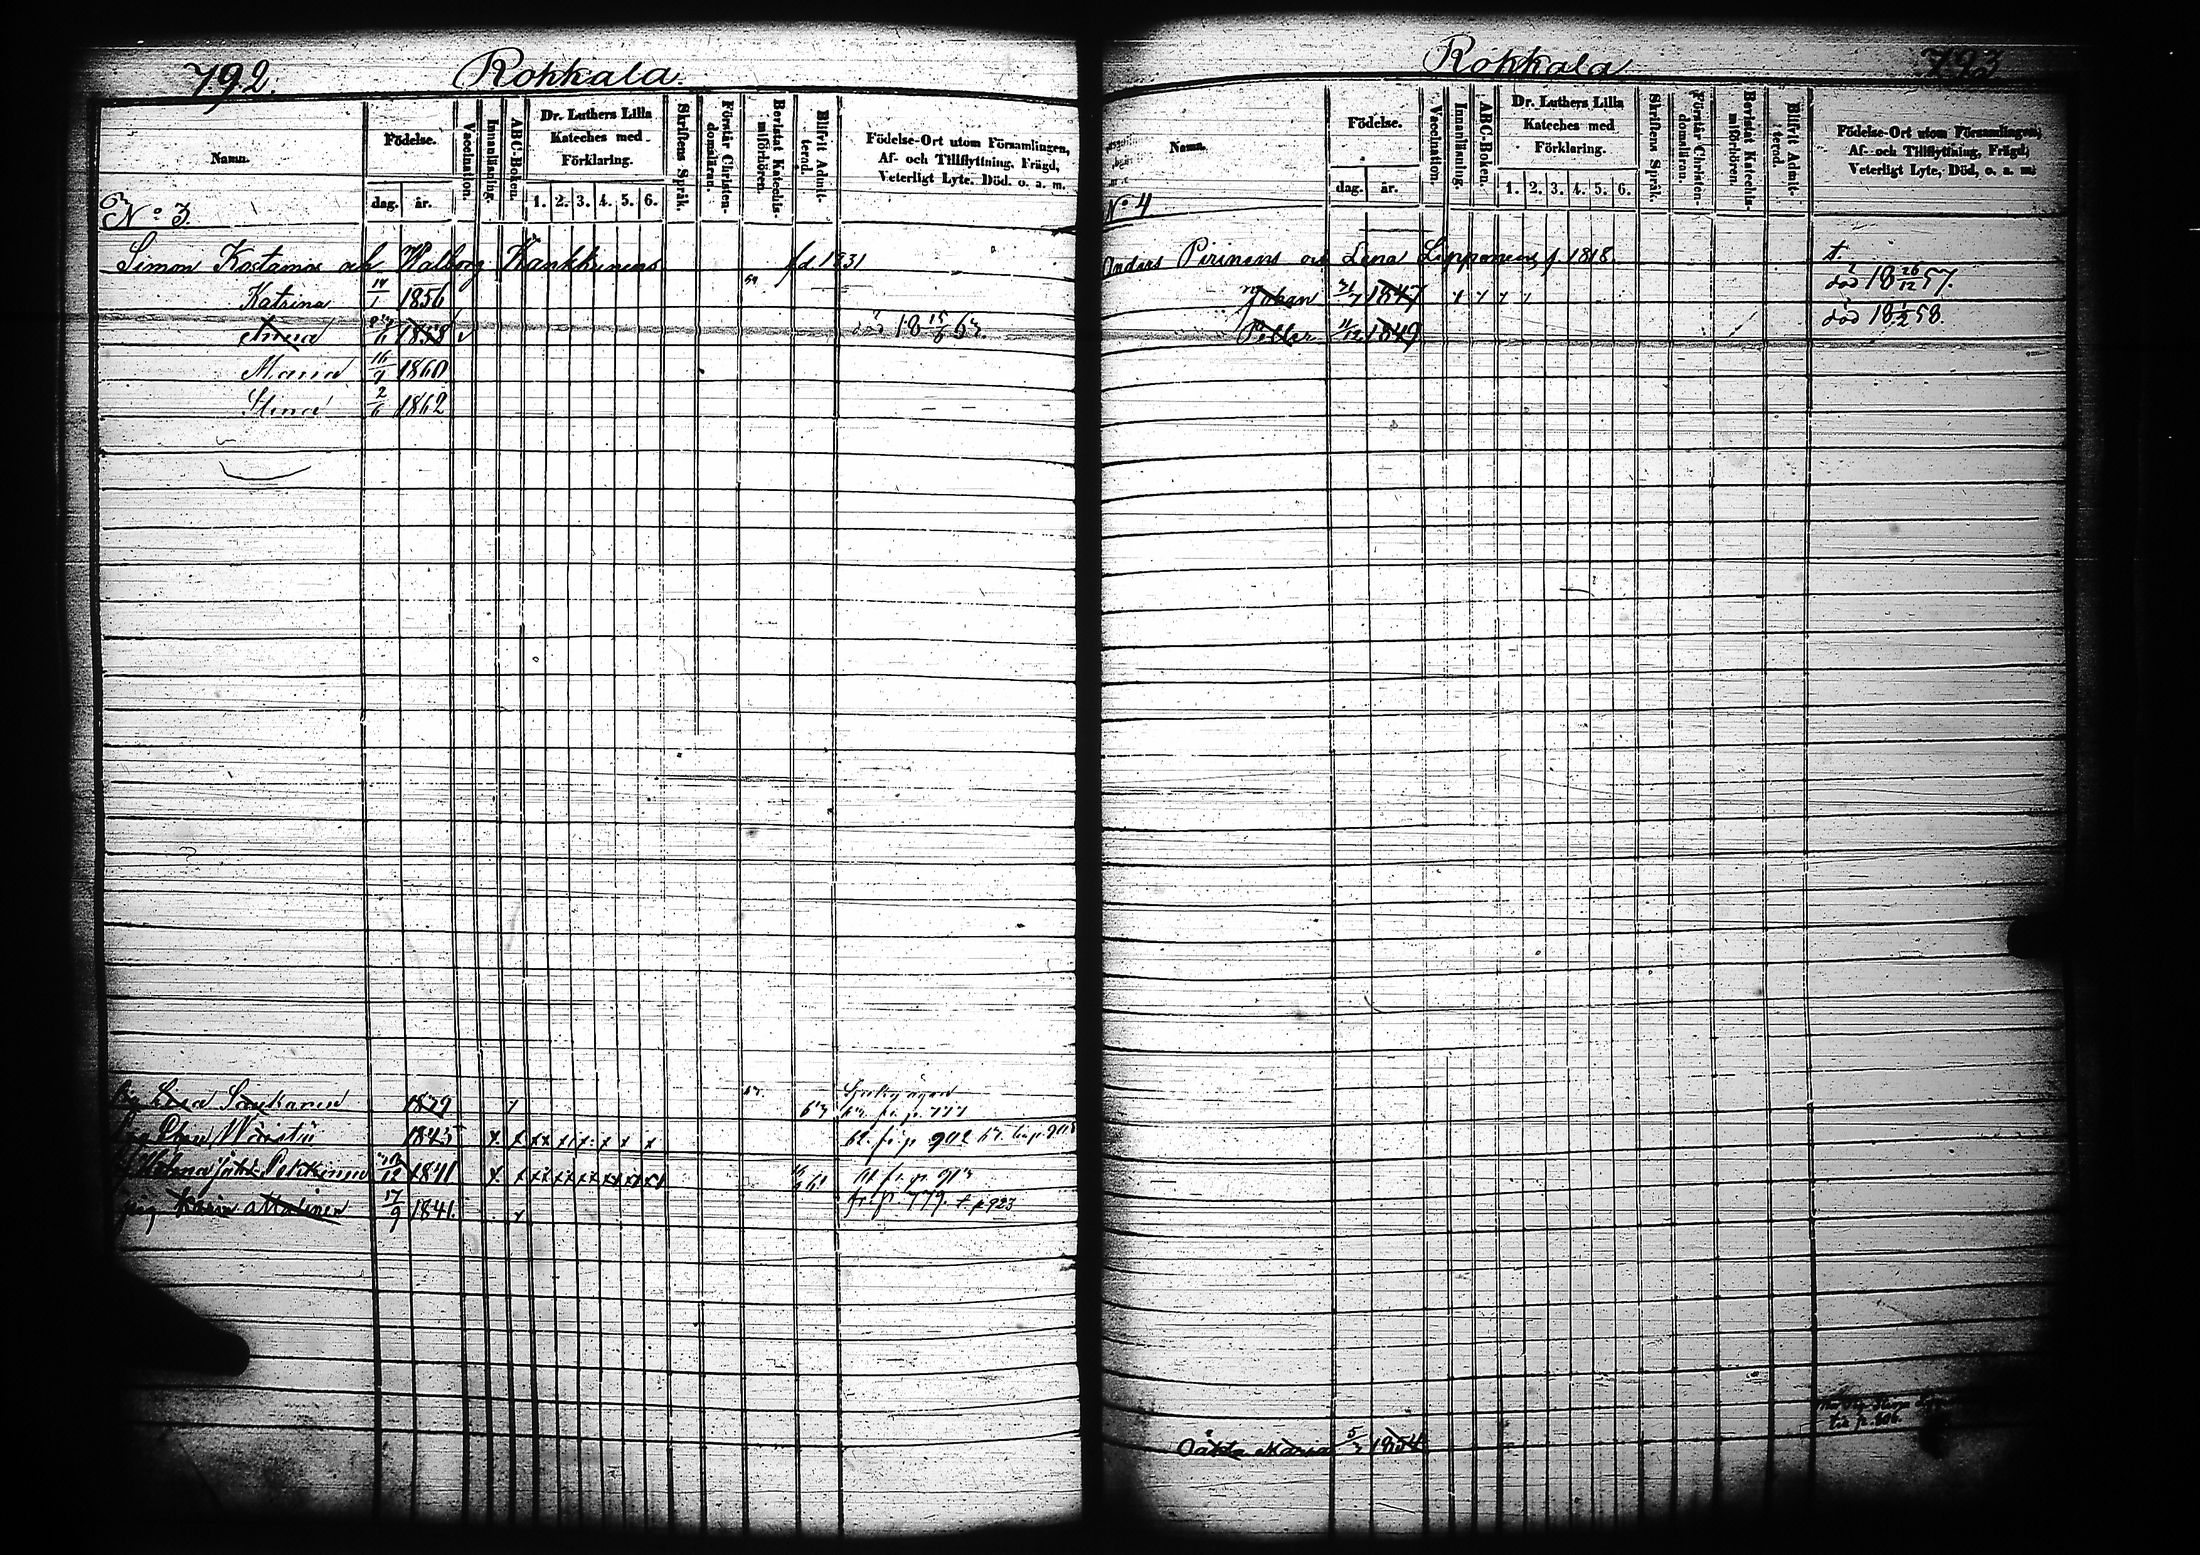 792. Rokkala.
Namn.
Födelse.
dag. år.
Vaccination.
Innanläsning.
ABC-Boken.
Dr. Luthers Lilla
Kateches med
Förklaring.
1. 2. 3. 4. 5. 6.
Skriftens Språk.
Förstår Christen-
domsläran.
Bevistat Katechis-
miförhören.
Blifvit Admit-
terad.
Födelse-Ort utom Församlingen,
Af- och Tillflyttning, Frägd,
Veterligt Lyte, Död. o. a. m.
No 3.
Simon Kostamos och Walborg Kankkunens fd. 1831
Katrina 14/1 1856 59
Anna 1858 v död 18 15/6 63.
Maria 16/9 1860
Stina 2/6 1862
Lisa Saukaren 1829 63
63 fr. p. 777
1845 62. fr. p 902
Helena Pekkinen 1841 61
pig Karin Malinen 17/9 1841. fr. p. 779. t. p 923
Rokkala 793
Namn.
Födelse.
dag. år.
Vaccination.
Innanläsning.
ABC-Boken.
Dr. Luthers Lilla
Kateches med
Förklaring.
1. 2. 3. 4. 5. 6.
Skriftens Språk.
Förstår Christen-
domsläran.
Bevistat Katechis-
miförhören.
Blifvit Admit-
terad.
Födelse-Ort utom Församlingen,
Af- och Tillflyttning, Frägd,
Veterligt Lyte, Död, o. a. m.
No 4
Anders Pirinens och Lena Lipponens f. 1818. t.
Johan 31/7 1847 död 18 26/12 57.
Petter 11/12 1849 död 18 1/2 58.
Maria 5/7 1854
p. 606.